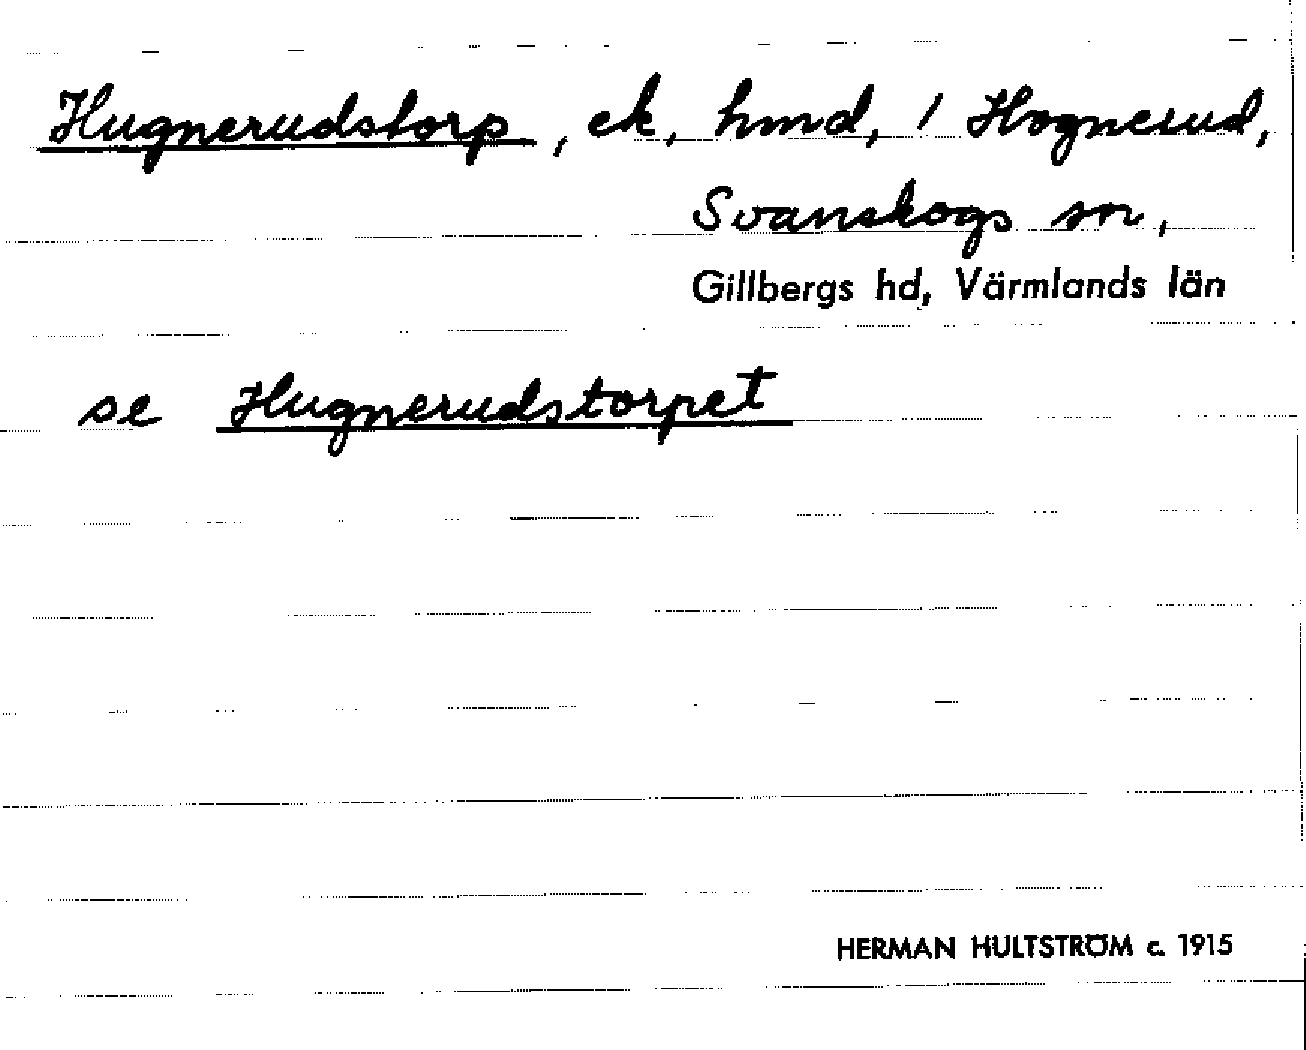 Hugnerudstorp, ek, hmd, / Hognerud,
Svanskogs sn,
Gillbergs hd, Värmlands län
se Hugnerudstorpet
HERMAN HULTSTRÖM c. 1915